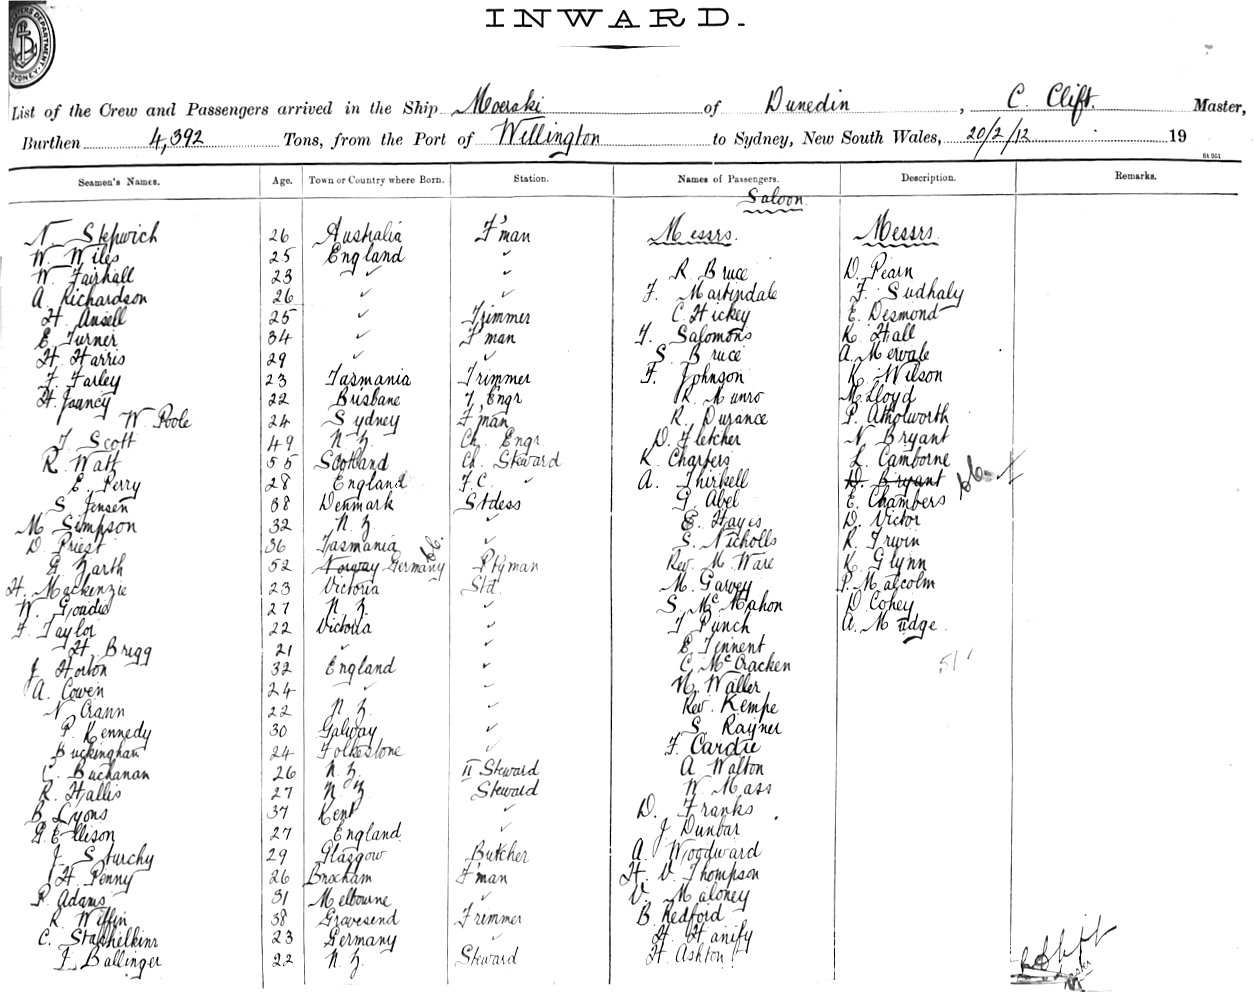 INWARD.
List of the Crew and Passengers arrived in the Ship Moeraki of Dunedin, C. Clift. Master,
Burthen 4,392 Tons, from the Port of Wellington to Sydney, New South Wales, 20/2/12 19
St 951
Seamen's Names. Age. Town or Country where Born. Station. Names of Passengers. Description. Remarks.
Saloon
N. Stepwich 26 Australia F'man Messrs. Messrs.
W. Wiles 25 England ✓
R. Bruce D. Pearn
W. Fairhall 23 ✓ ✓
A. Richardson 26 ✓ ✓ F. Martindale F. Sudhaly
H. Ansell 25 ✓ Trimmer C. Hickey E. Desmond
E. Turner 34 ✓ F'man F. Salomons K. Hall
H. Harris 29 ✓ ✓ S. Bruce A. Mervale
F. Farley 23 Tasmania Trimmer F. Johnson K. Wilson
H. 22 Brisbane Engr R. Munro M. Lloyd
W. Poole 24 Sydney F'man R. Durance P. Atholworth
T. Scott 49 N.Z. Ch. Engr. D. Fletcher N. Bryant
R. Watt 55 Scotland Ch. Steward K. Charters L. Camborne
E. Perry 28 England F.C. ✓ A. Thirkell D. Bryant
S. Jensen 38 Denmark Stdess G. Abel E. Chambers
M. Simpson 32 N.Z. ✓ E. Hayes D. Victor
D. Priest 36 Tasmania ✓ S. Nicholls R. Irwin
G. Zarth 52 Norway Germany P'tyman Rev. M. Ware K. Glynn
H. Mackenzie 23 Victoria Std. M. Garvey P. Malcolm
W. Goadie 27 N.Z. ✓ S. McMahon D. Cohey
F. Taylor 22 Victoria ✓ T. Punch A. Mudge
H. Brigg 21 ✓ ✓ E. Tennent
J. Horton 32 England ✓ C. McCracken 51
A. Cowen 24 ✓ ✓ N. Waller
N. Crann 22 N.Z. ✓ Rev. Kempe
P. Kennedy 30 Galway ✓ S. Rayner
Buckingham 24 Folkestone ✓ F. Cardie
C. Buchanan 26 N.Z. II Steward A. Walton
R. Hallis 27 N.Z. Steward W. Mass
B. Lyons 37 Kent ✓ D. Franks
G. Ellison 27 England ✓ J. Dunbar
J. Sturchy 29 Glasgow Butcher A. Woodward
H. Penny 26 Broxham F'man H. V. Thompson
R. Adams 31 Melbourne ✓ V. Maloney
R. Wiffin 38 Gravesend Trimmer B. Redford
C. 23 Germany ✓ H. Hanify
F. Ballinger 22 N.Z. Steward H. Ashton